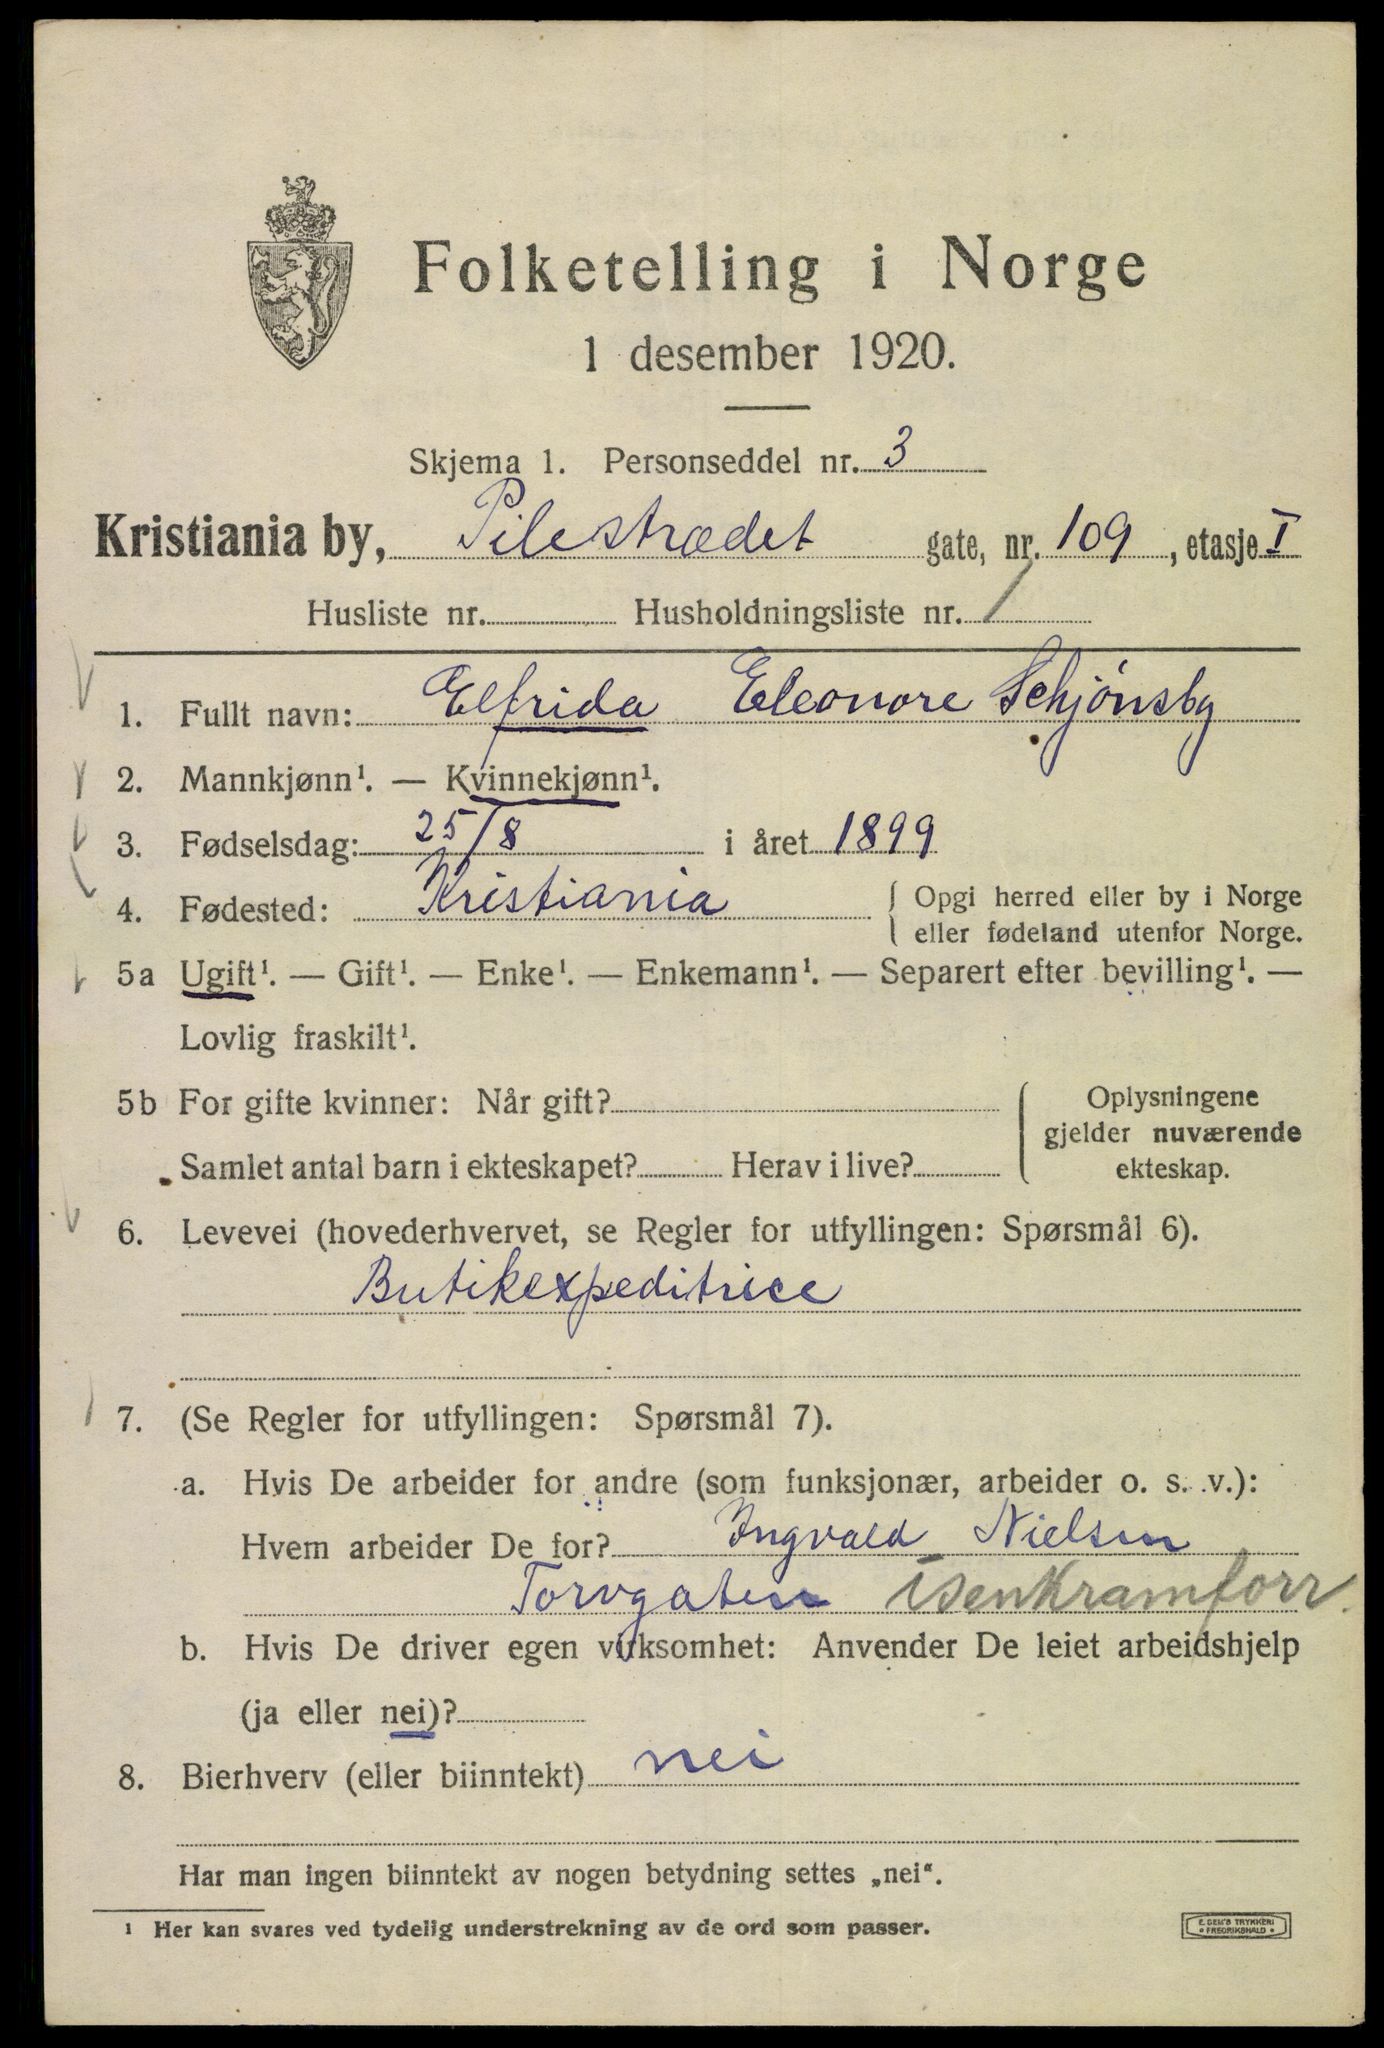 Folketelling i Norge
1 desember 1920.
Skjema 1. Personseddel nr. 3
Kristiania by, Pilestrædet gate, nr. 109, etasje I
Husliste nr. Husholdningsliste nr. 1
1. Fullt navn: Elfrida Eleonore Schjónsby
2. Mannkjønn¹. — Kvinnekjønn¹.
3. Fødselsdag: 25/8 i året 1899
4. Fødested: Kristiania { Opgi herred eller by i Norge
eller fødeland utenfor Norge.
5a Ugift¹. — Gift¹. — Enke¹. — Enkemann¹. — Separert efter bevilling¹. —
Lovlig fraskilt¹.
5b For gifte kvinner: Når gift? { Oplysningene
gjelder nuværende
Samlet antal barn i ekteskapet? Herav i live? ekteskap.
6. Levevei (hovederhvervet, se Regler for utfyllingen: Spørsmål 6).
Butikexpeditrice
7. (Se Regler for utfyllingen: Spørsmål 7).
a. Hvis De arbeider for andre (som funksjonær, arbeider o. s. v.):
Hvem arbeider De for? Yngvald Nielsen
Torvgaten isenkramforr.
b. Hvis De driver egen virksomhet: Anvender De leiet arbeidshjelp
(ja eller nei)?
8. Bierhverv (eller biinntekt) nei
Har man ingen biinntekt av nogen betydning settes „nei“.
¹ Her kan svares ved tydelig understrekning av de ord som passer.
E. SEM'S TRYKKERI
FREDRIKSHALD